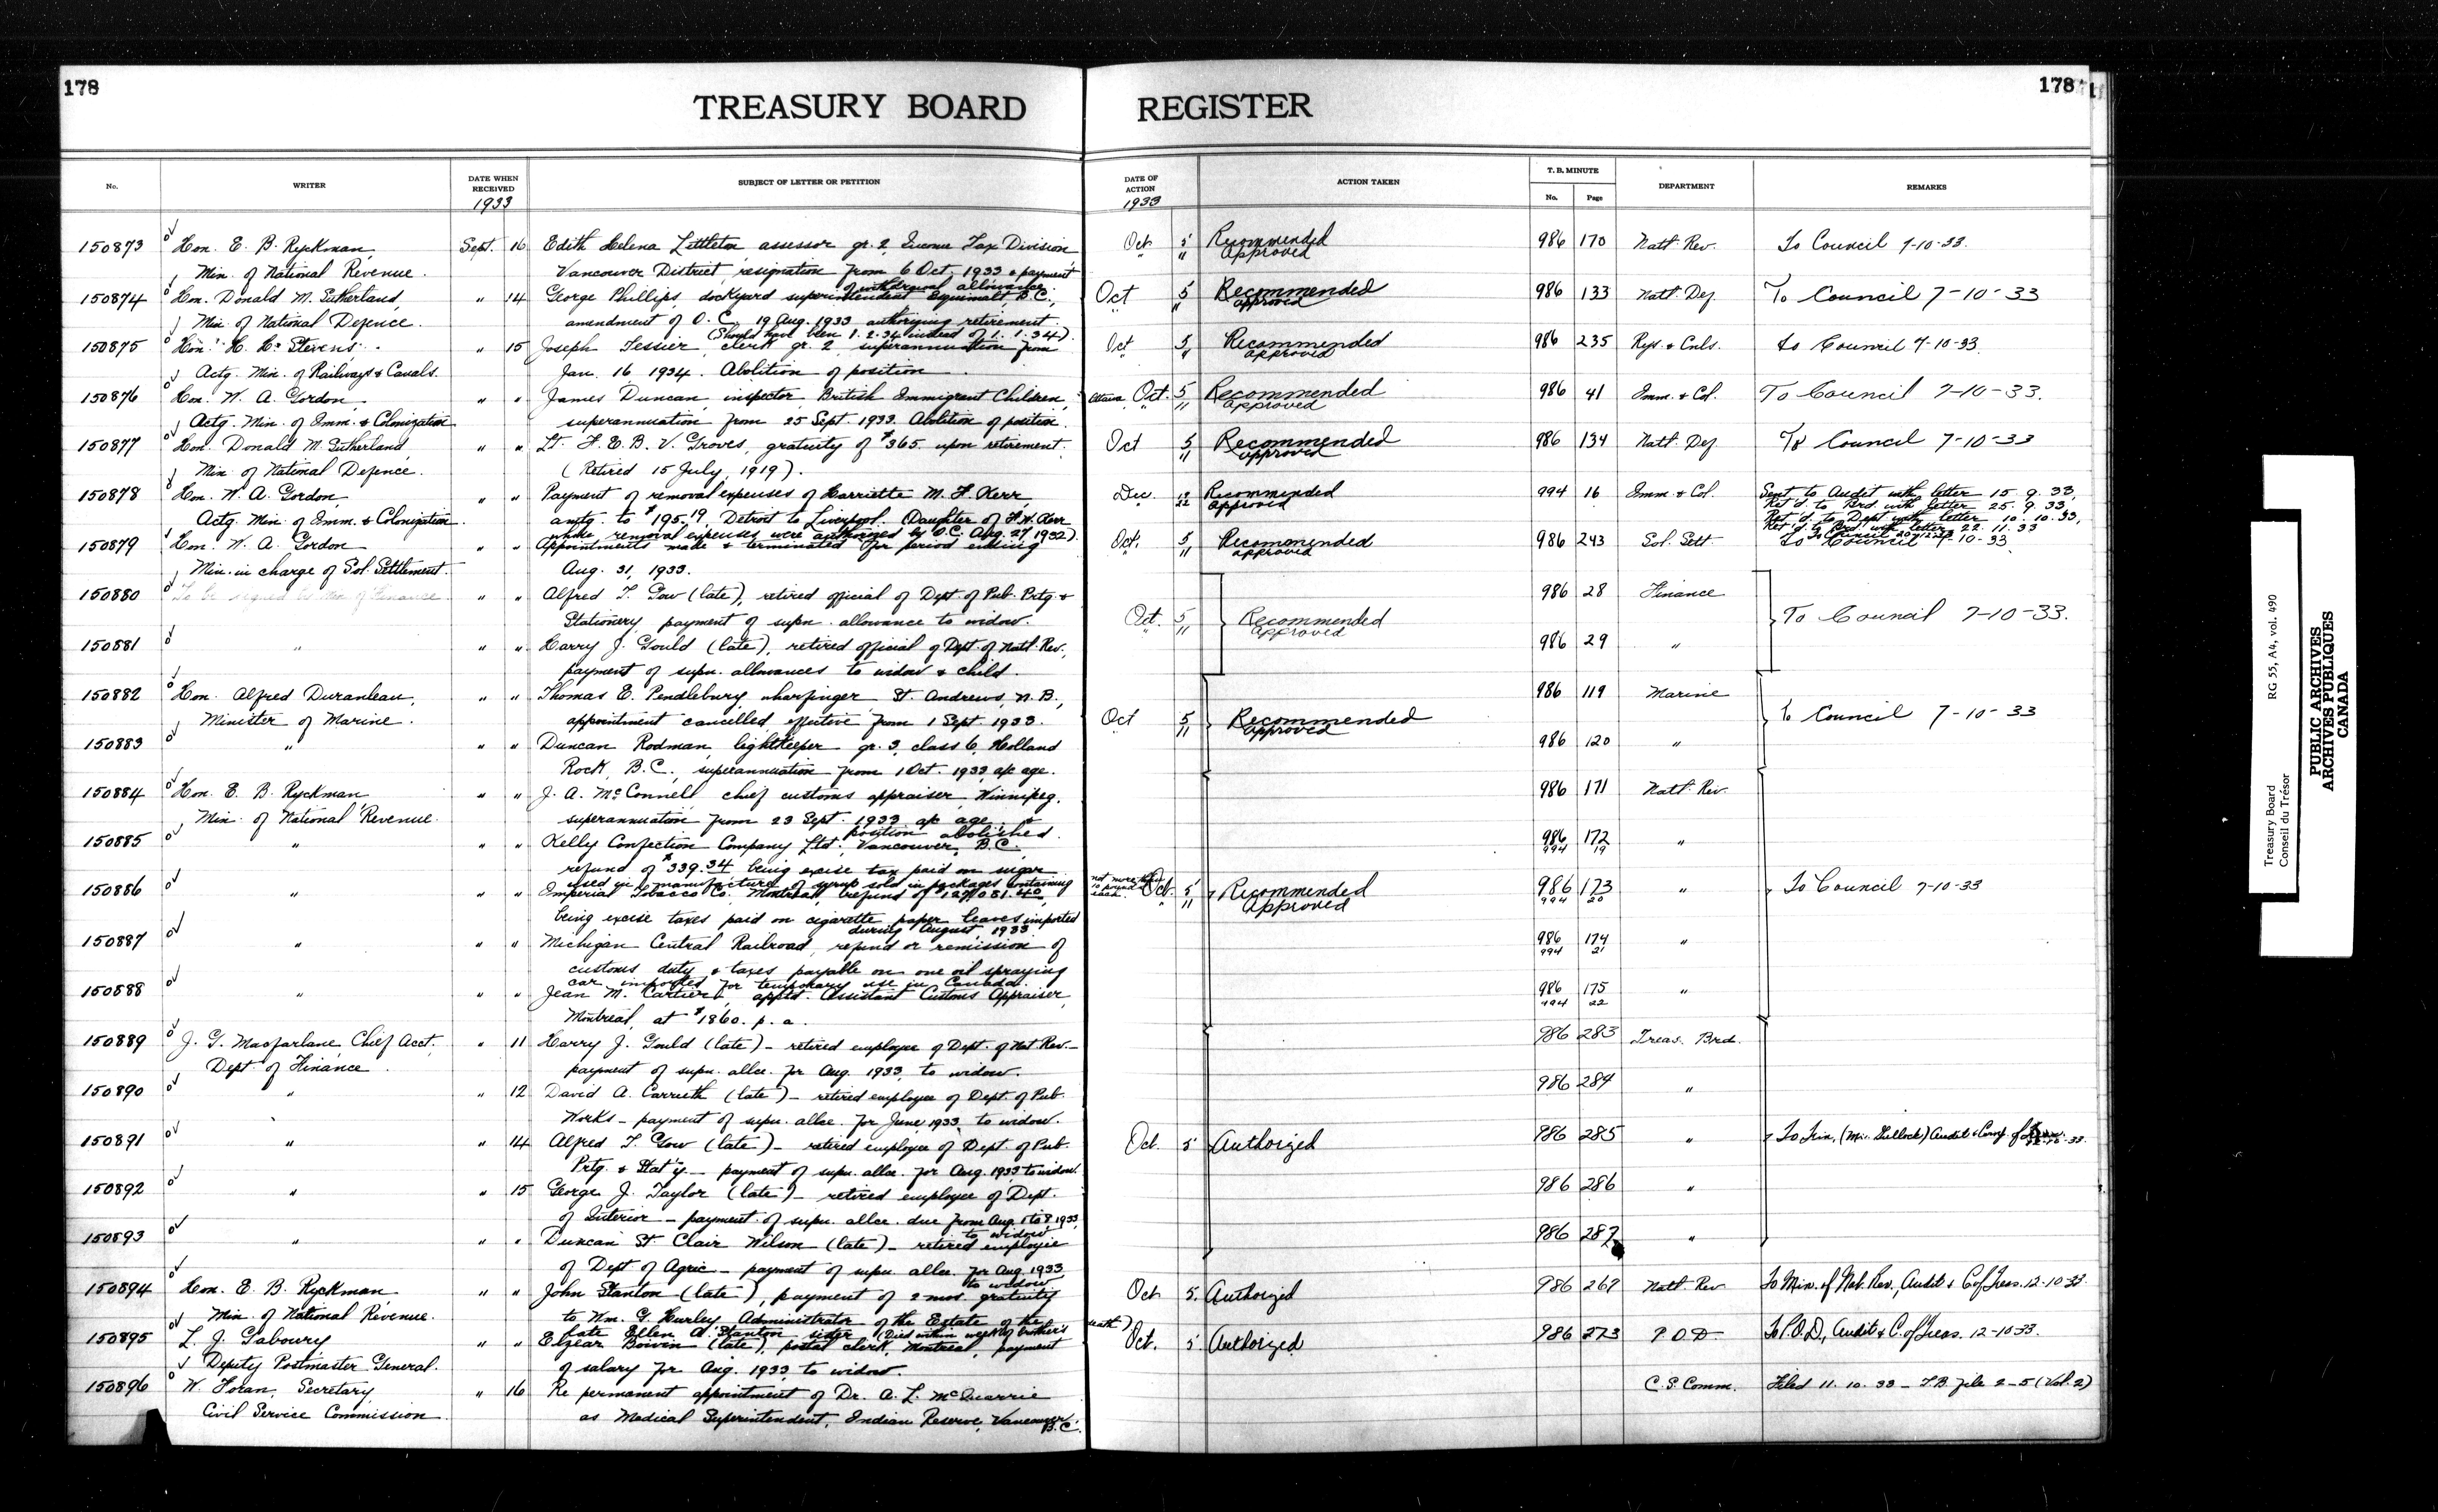 178
TREASURY BOARD REGISTER
178
No. WRITER DATE WHEN RECEIVED SUBJECT OF LETTER OR PETITION DATE OF ACTION ACTION TAKEN T. B. MINUTE No. Page DEPARTMENT REMARKS
1933 1933
150873 Hon. E. B. Ryckman, Sept. 16 Edith Helena Littleton, assessor gr. 2, Income Tax Division, Oct 5 Recommended 986 170 Natl. Rev. To Council 7-10-33.
Min. of National Revenue. Vancouver District, resignation from 6 Oct. 1933 & payment " 11 Approved
of withdrawal allowance.
150874 Hon. Donald M. Sutherland, " 14 George Phillips, dockyard superintendent Esquimalt B.C., Oct 5 Recommended 986 133 Natl. Def. To Council 7-10-33
Min. of National Defence. amendment of O.C. 19 Aug. 1933 authorizing retirement. " 11 approved
(Should have been 1.2.34 instead of 1.1.34).
150875 Hon. H. H. Stevens, " 15 Joseph Tessier, clerk gr. 2, superannuation from Oct 5 Recommended 986 235 Rys. & Cnls. to Council 7-10-33.
Actg. Min. of Railways & Canals. Jan. 16 1934. Abolition of position. " 11 approved
150876 Hon. W. A. Gordon, " " James Duncan, inspector British Immigrant Children, Ottawa Oct. 5 Recommended 986 41 Imm. & Col. To Council 7-10-33.
Actg. Min. of Imm. & Colonization superannuation from 25 Sept. 1933. Abolition of position. " 11 approved
150877 Hon. Donald M. Sutherland, " " Lt. F. E. B. V. Groves, gratuity of $365. upon retirement. Oct 5 Recommended 986 134 Natl. Def. To Council 7-10-33
Min. of National Defence. (Retired 15 July, 1919). 11 approved
150878 Hon. W. A. Gordon, " " Payment of removal expenses of Harriette M. F. Kerr, Dec. 19 Recommended 994 16 Imm. & Col. Sent to Audit with letter 15.9.33,
Actg. Min. of Imm. & Colonization. amtg. to $195.19, Detroit to Liverpool. (Daughter of F. W. Kerr 22 Approved Ret'd. to Brd. with letter 25.9.33
whose removal expenses were authorized by O.C. Aug. 27 1932). Ret'd. to Dept with letter 10.10.33,
Ret'd to Brd. with letter 22.11.33
150879 Hon. W. A. Gordon " " Appointments made & terminated for period ending Oct. 5 Recommended 986 243 Sol. Sett. To Council 7-10-33
Min. in charge of Sol. Settlement. Aug. 31, 1933. " 11 approved
150880 " " Alfred T. Gow (late), retired official of Dept of Pub. Prtg. & Oct. 5 Recommended 986 28 Finance To Council 7-10-33.
Stationery payment of supn. allowance to widow. " 11 approved
150881 " " " Harry J. Gould (late), retired official of Dept. of Natl. Rev., 986 29 "
payment of supn. allowances to widow & child.
150882 Hon. Alfred Duranleau, " " Thomas E. Pendlebury, wharfinger, St. Andrews, N.B., 986 119 Marine
Minister of Marine. appointment cancelled, effective from 1 Sept. 1933. Oct 5 Recommended To Council 7-10-33
" 11 approved
150883 " " " Duncan Rodman, lightkeeper gr. 3, class 6, Holland 986 120 "
Rock, B.C., superannuation from 1 Oct. 1933, a/c age.
150884 Hon. E. B. Ryckman, " " J. A. McConnell chief customs appraiser, Winnipeg, 986 171 Natl. Rev.
Min. of National Revenue. superannuation from 23 Sept. 1933 a/c age &
position abolished.
150885 " " " Kelly Confection Company Ltd., Vancouver, B.C. 986 172 "
994 19
refund of $339.34 being excise tax paid on sugar
used in manufacture of syrup sold in packages containing not more than 10 pounds each.
150886 " " " Imperial Tobacco Co. Montreal, refund of 129,081.40, Oct. 5 Recommended 986 173 " To Council 7-10-33
" 11 approved 994 20
being excise taxes paid on cigarette paper leaves imported
during August 1933.
150887 " " " Michigan Central Railroad, refund or remission of 986 174 "
994 21
customs duty & taxes payable on one oil spraying
car imported for temporary use in Canada.
150888 " " " Jean M. Cartier, apptd. Assistant Customs Appraiser, 986 175 "
994 22
Montreal, at $1860. p. a.
150889 J. G. Macfarlane, Chief Acct. " 11 Harry J. Gould (late) - retired employee of Dept. of Nat. Rev. - 986 283 Treas. Brd.
Dept. of Finance payment of supn. allce. for Aug. 1933, to widow.
150890 " " 12 David A. Carruth (late) - retired employee of Dept. of Pub. 986 284 "
Works - payment of supn. allce. for June, 1933, to widow.
150891 " " 14 Alfred T. Gow (late) - retired employee of Dept. of Pub. Oct. 5 Authorized 986 285 " To Fin. (Mr. Bullock) Audit & 12-10-33.
Prtg. & Stat'y. - payment of supn. allce. for Aug. 1933 to widow.
150892 " " 15 George J. Taylor (late) - retired employee of Dept. 986 286 "
of Interior - payment of supn. allce. due from Aug. 1 to 8, 1933,
to widow.
150893 " " " Duncan St. Clair Wilson (late) - retired employee 986 287 "
of Dept of Agric. - payment of supn. allce. for Aug. 1933
to widow
150894 Hon. E. B. Ryckman " " John Stanton (late), payment of 2 mos. gratuity Oct 5. Authorized 986 269 Natl. Rev To Min. of Nat. Rev., Audit & C. of Treas. 12-10-33.
Min. of National Revenue. to Wm. G. Hurley, Administrator of the Estate of the
late Ellen A. Stanton, sister (Died within week of brother's death)
150895 L. J. Gaboury " " Elzear Boivin (late), postal clerk, Montreal, payment Oct. 5. Authorized 986 273 P.O.D To P.O.D, Audit & C. of Treas. 12-10-33.
Deputy Postmaster General. of salary for Aug. 1933, to widow.
150896 W. Foran, Secretary, " 16 Re permanent appointment of Dr. A. L. McQuarrie C.S. Comm. Filed 11.10.33 - T.B. file 2-5 (Vol. 2)
Civil Service Commission as Medical Superintendent, Indian Reserve, Vancouver,
B.C.
Treasury Board RG 55, A4, vol. 490
Conseil du Trésor
PUBLIC ARCHIVES
ARCHIVES PUBLIQUES
CANADA